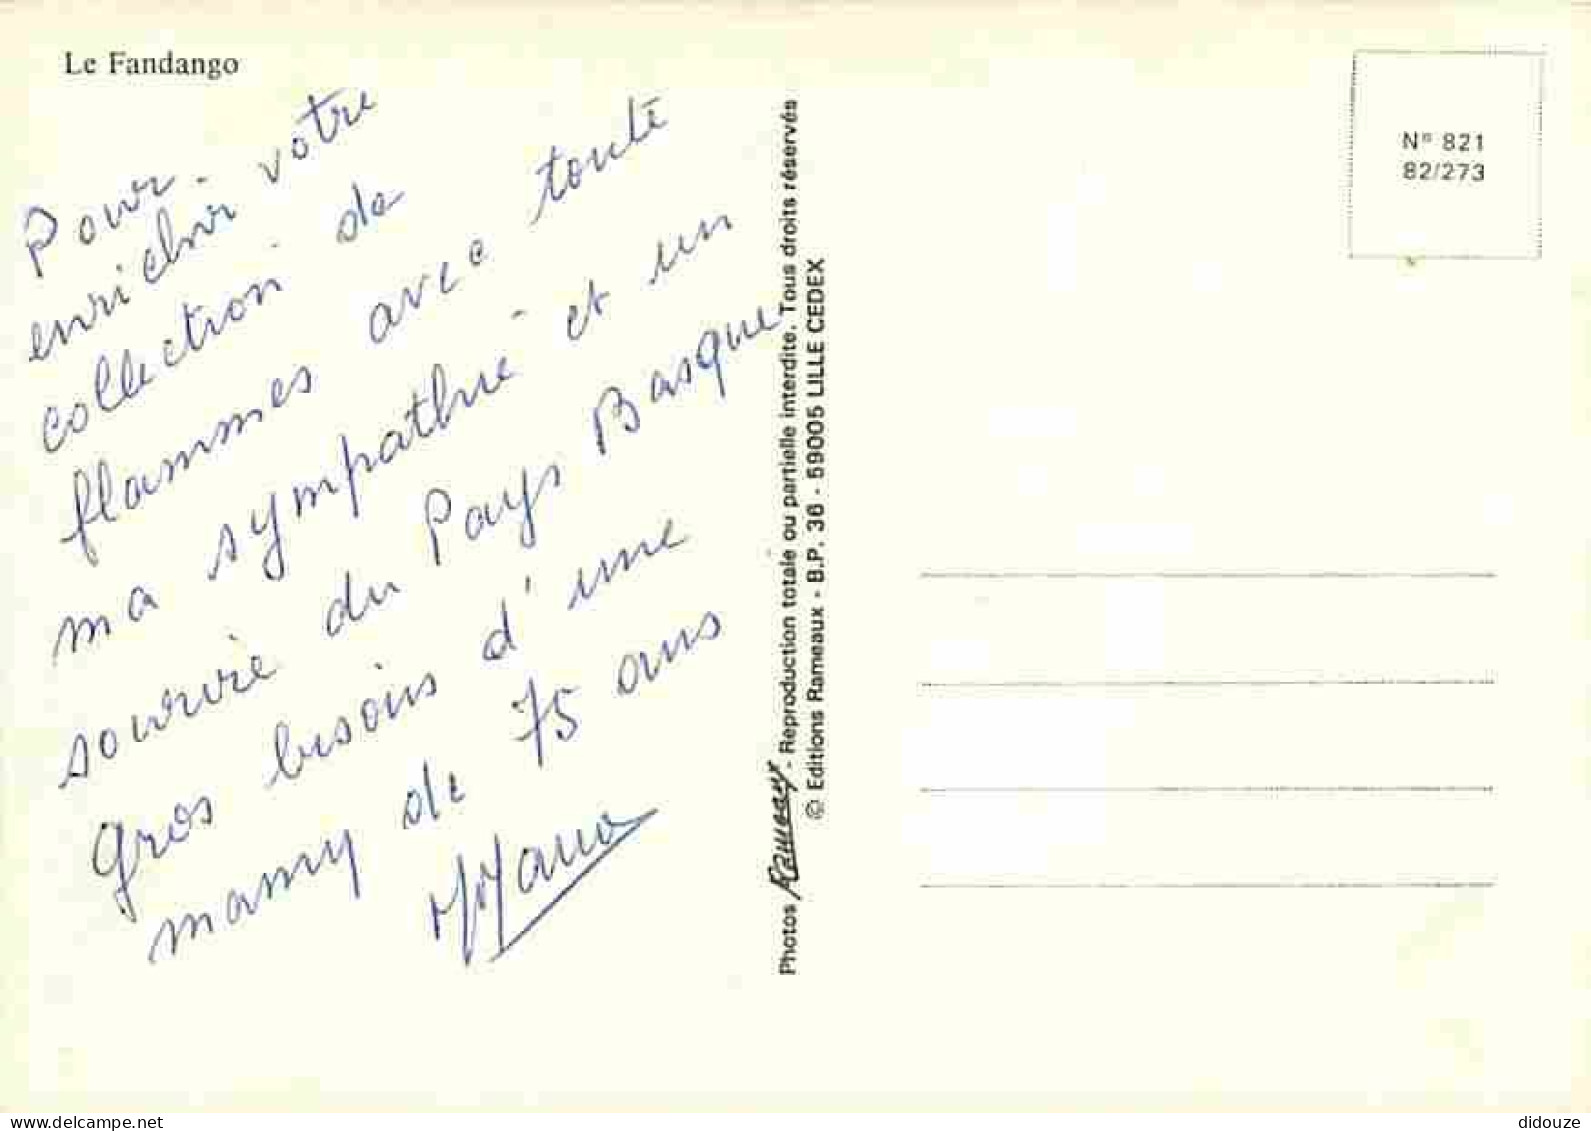 Le Fandango
Pour votre
enrichir
collection de
flammes avec toute
ma sympathie et un
sourire du Pays Basque
Gros besoins d'une
mamy de 75 ans
N° 821
82/273
Photos Rameau - Reproduction totale ou partielle interdite. Tous droits réservés
© Editions Rameaux - B.P. 36 - 59005 LILLE CEDEX
delcampe.net
didouze